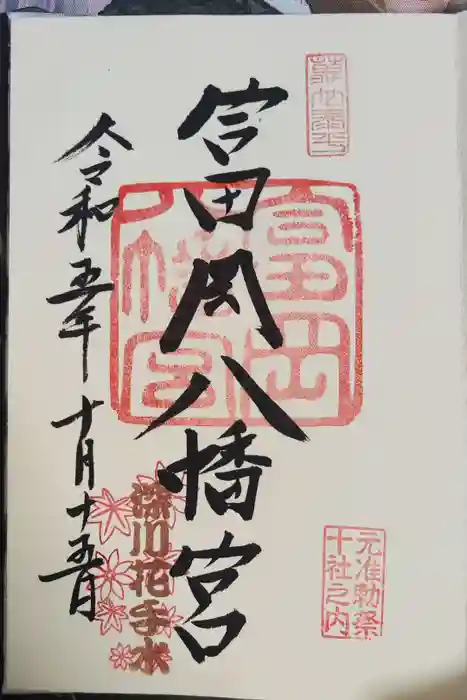 富岡八幡宮
令和五年十月十五日
富岡八幡宮
深川花手水
元准勅祭
十社之内